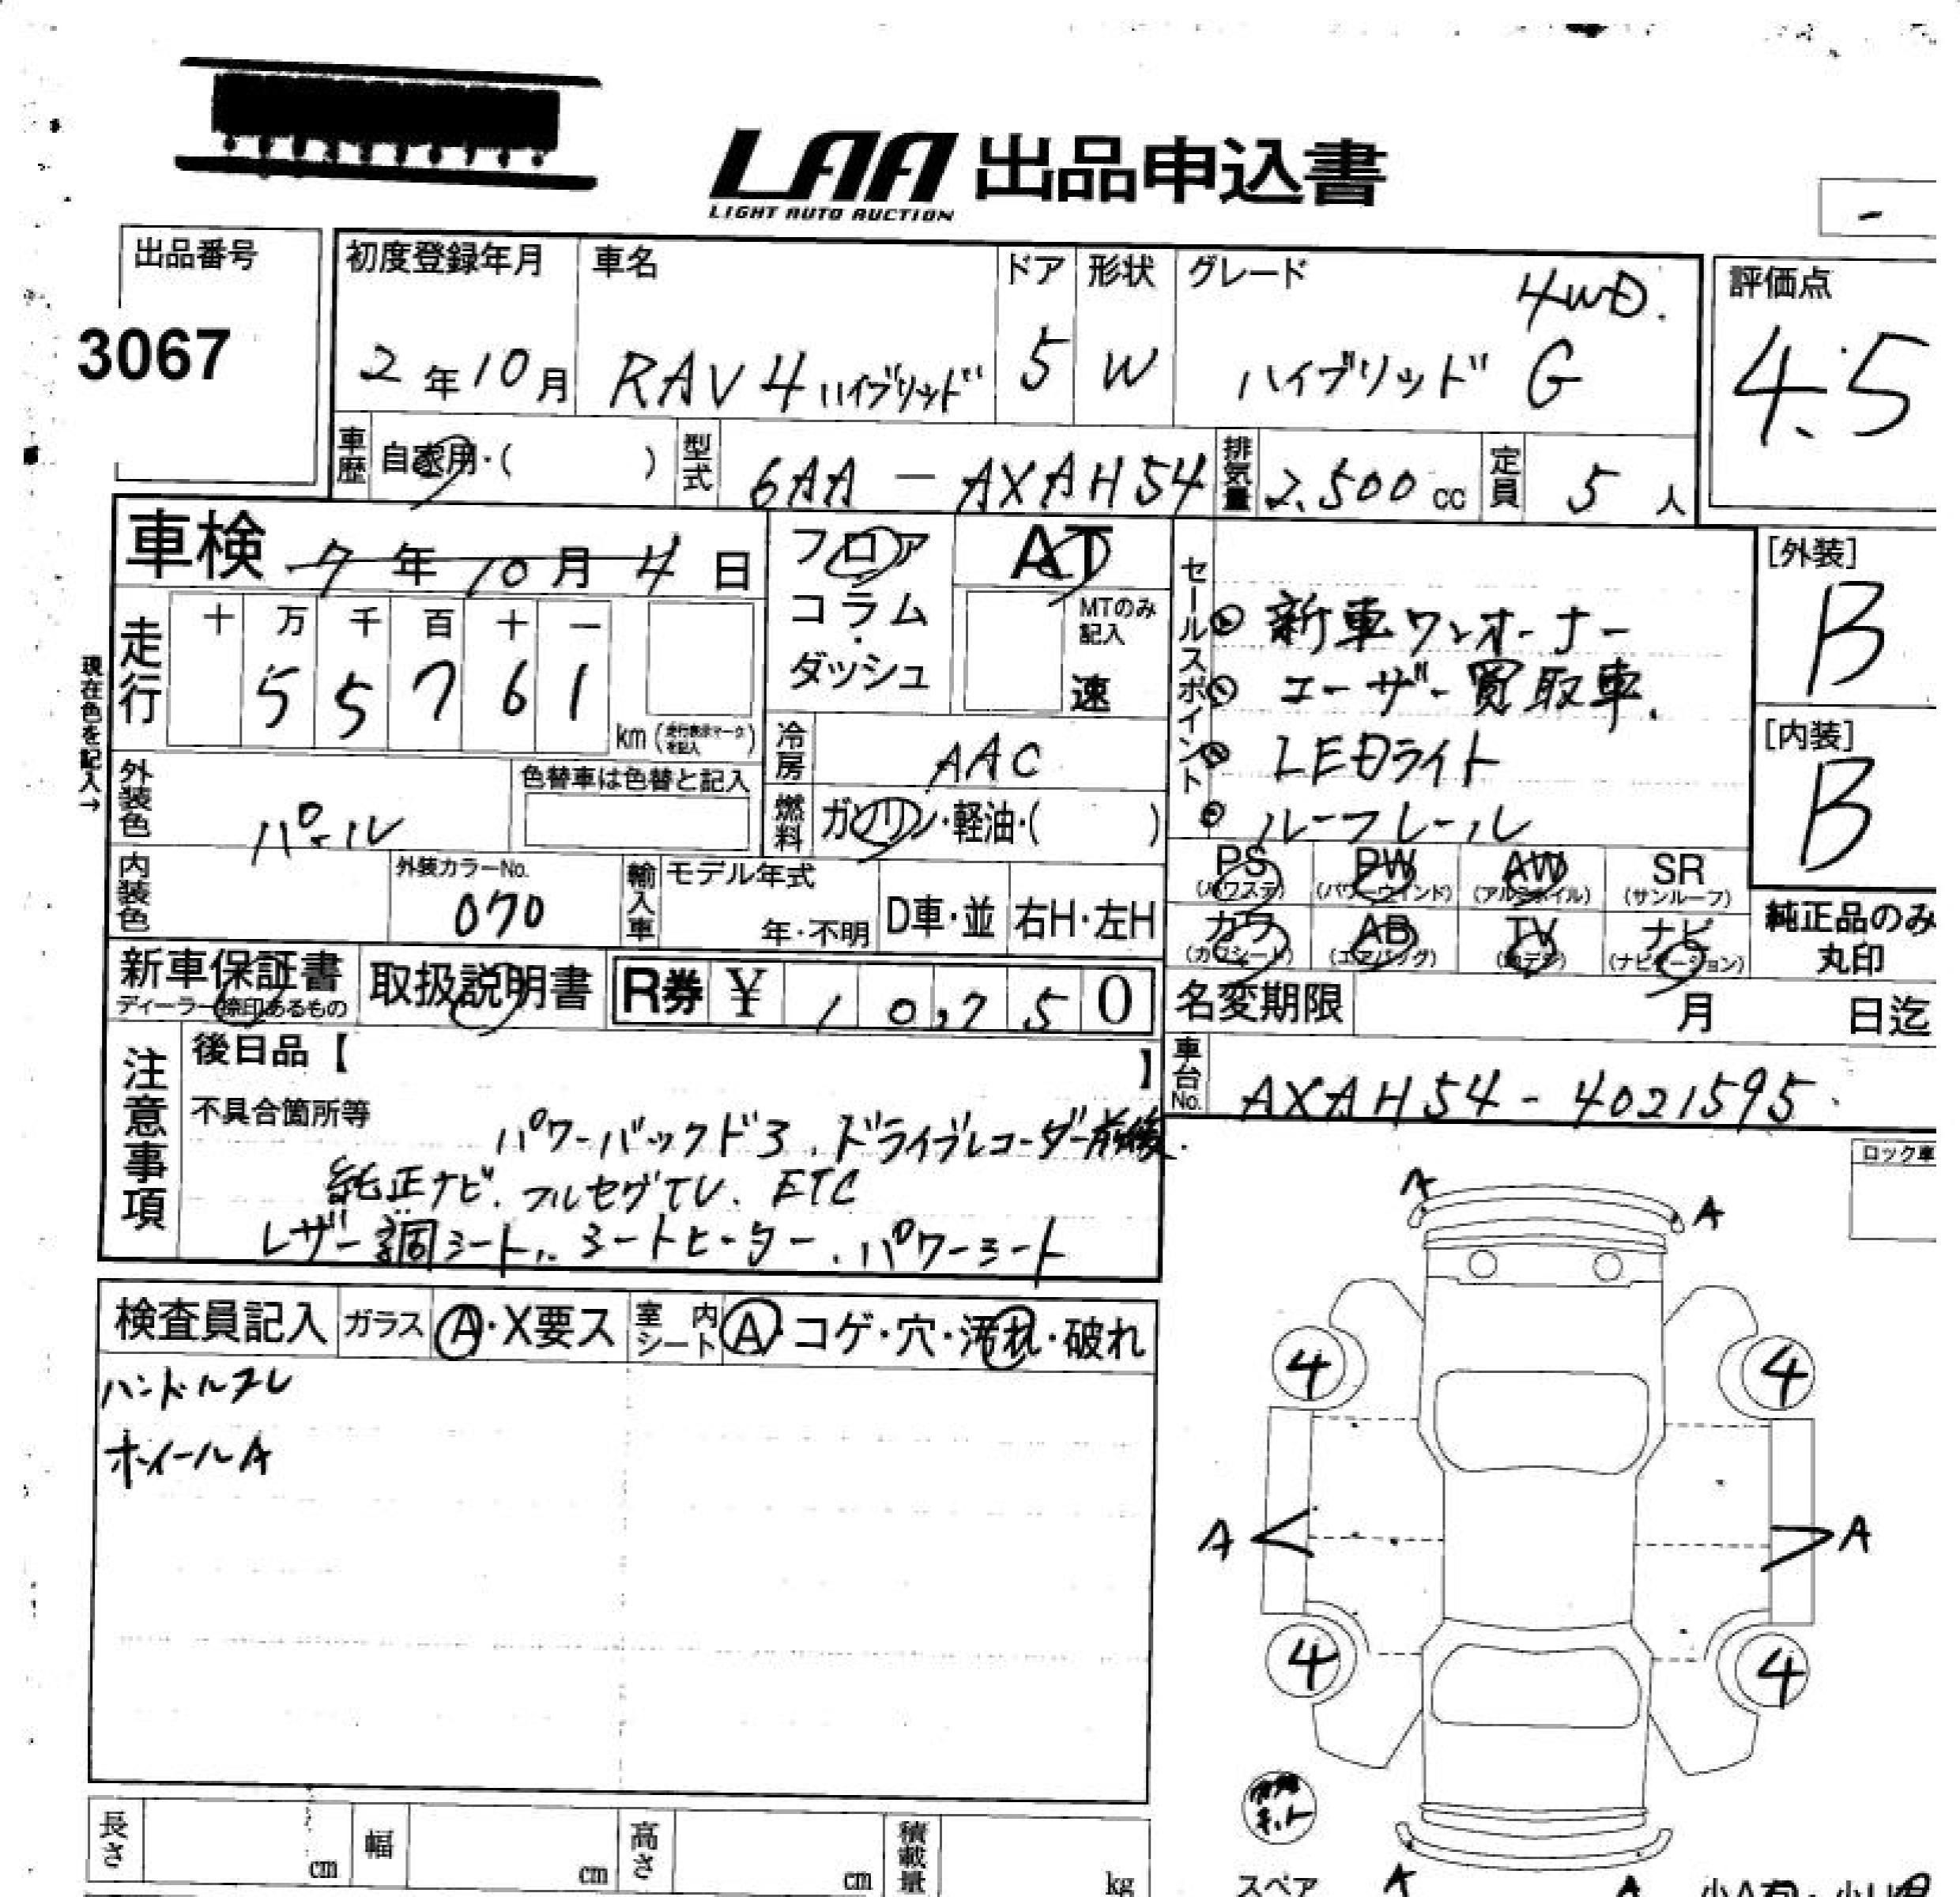 LAA 出品申込書
LIGHT AUTO AUCTION
出品番号
3067
初度登録年月
2年10月
車名
RAV4 ハイブリッド
ドア
5
形状
W
グレード
4WD.
ハイブリッド G
評価点
4.5
車歴 自家用・( )
型式 6AA-AXAH54
排気量 2.500 cc
定員 5 人
車検 7年10月4日
フロア
コラム・
ダッシュ
AT
MTのみ記入
速
走行
十 万 千 百 十 一
5 5 7 6 1
km (走行表示マークを記入)
現在色を記入→
冷房 AAC
燃料 ガソリン・軽油・( )
外装色 パール
色替車は色替と記入
内装色
外装カラーNo.
070
輸入車 モデル年式
年・不明
D車・並
右H・左H
セールスポイント
新車ワンオーナー
ユーザー買取車.
LEDライト
ルーフレール
[外装]
B
[内装]
B
PS (パワステ)
PW (パワーウインド)
AW (アルミホイル)
SR (サンルーフ)
カワ (カワシート)
AB (エアバッグ)
TV
ナビ (ナビゲーション)
純正品のみ
丸印
新車保証書
ディーラー捺印あるもの
取扱説明書
R券 ¥ 1 0,7 5 0
名変期限 月 日迄
車台No. AXAH54-4021595
注意事項
後日品【 】
不具合箇所等
パワーバックドア, ドライブレコーダー前後.
純正ナビ. フルセグTV. ETC
レザー調シート, シートヒーター, パワーシート
ロック車
検査員記入
ガラス A・X要ス
室内シート A・コゲ・穴・汚れ・破れ
ハンドルスレ
ホイールA
A
A
4
4
A
A
4
4
キット
長さ cm
幅 cm
高さ cm
積載量 kg
スペア
A
A